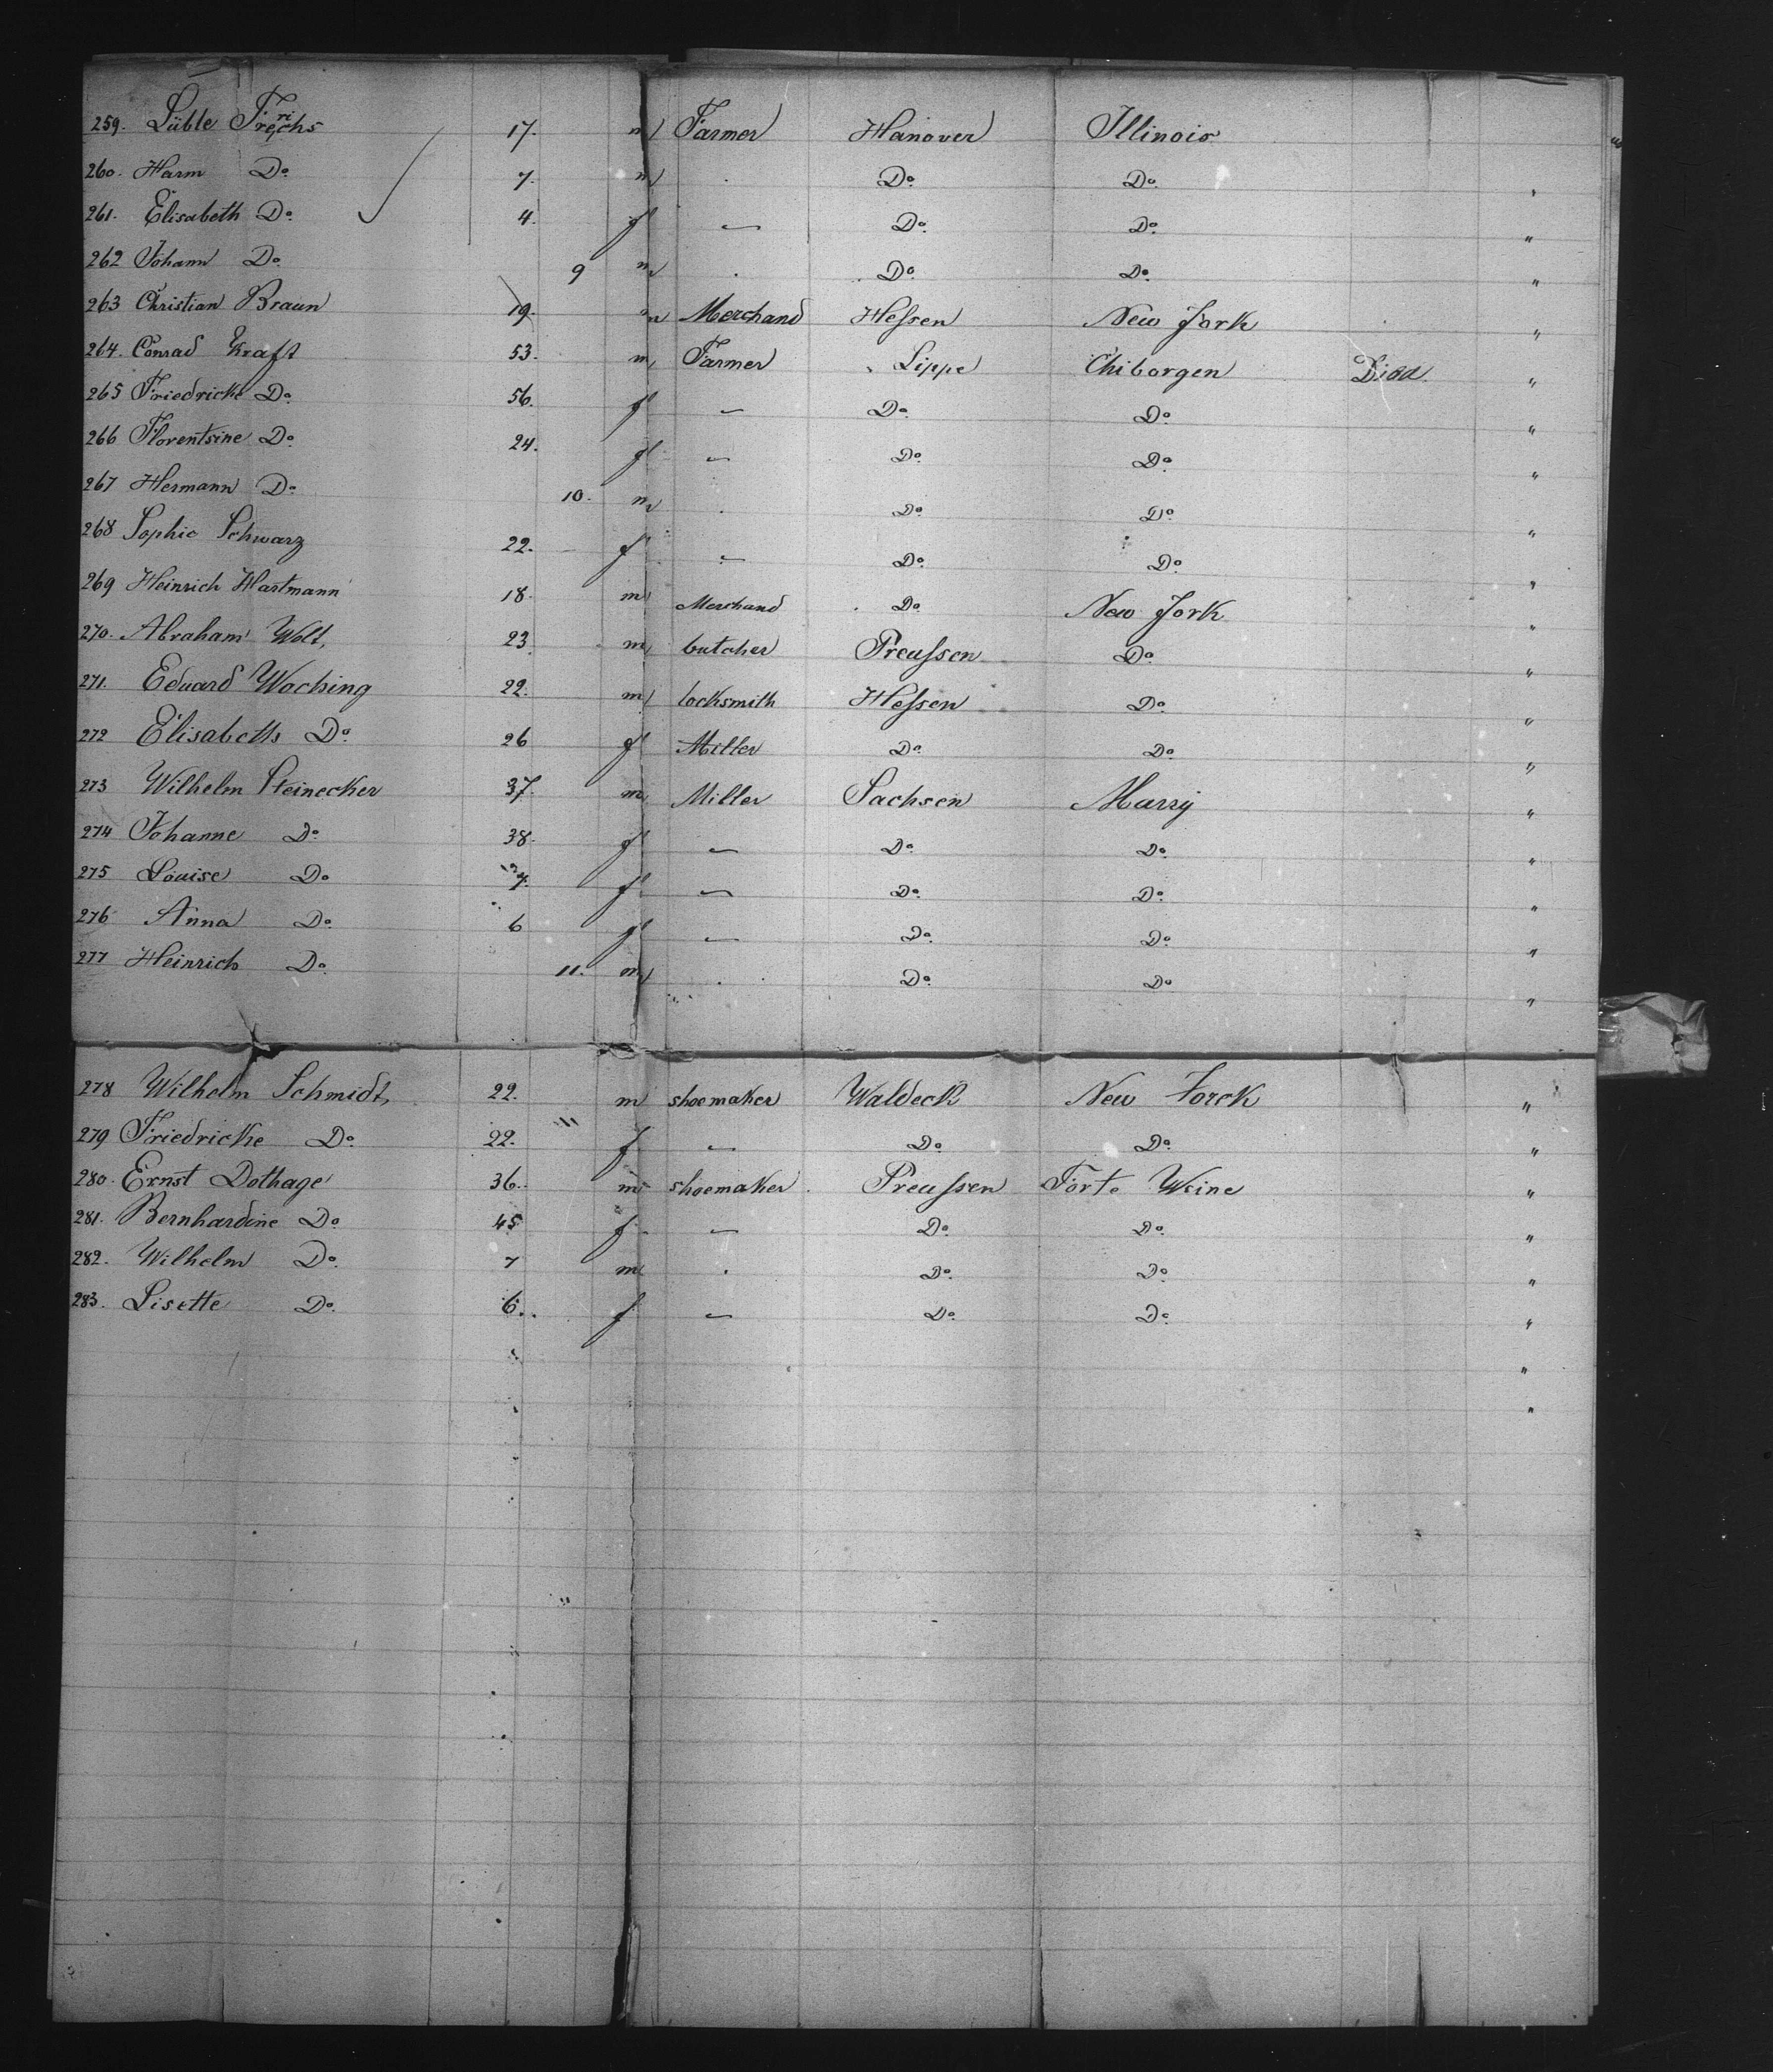 259. Lüble Frerichs 17. m Farmer Hanover Illinois "
260. Harm Do 7. m . Do Do "
261. Elisabeth Do 4. f — Do Do "
262 Johann Do 9 m . Do Do "
263 Christian Braun 19. m Merchand Hessen New Jork "
264. Conrad Kraft 53. m Farmer Lippe Chiborgen Died. "
265 Friedricke Do 56. f — Do Do "
266 Florentsine Do 24. f — Do Do "
267 Hermann Do 10. m . Do Do "
268 Sophie Schwarz 22. f — Do Do "
269 Heinrich Hartmann 18. m Merchand Do New Jork "
270. Abraham Wolt, 23 m butcher Preussen Do "
271. Eduard Woching 22. m locksmith Hessen Do "
272 Elisabeth Do 26 f Miller Do Do "
273 Wilhelm Steinecker 37. m Miller Sachsen Murry "
274 Johanne Do 38. f — Do Do "
275 Louise Do 7. f — Do Do "
276 Anna Do 6 f — Do Do "
277 Heinrich Do 11. m . Do Do "
278 Wilhelm Schmidt, 22. m shoemaker Waldeck New Jorck "
279 Friedricke Do 22. f — Do Do "
280. Ernst Dothage 36. m shoemaker Preussen Forte Weine "
281. Bernhardine Do 45 f — Do Do "
282. Wilhelm Do 7 m . Do Do "
283. Lisette Do 6. f — Do Do "
"
"